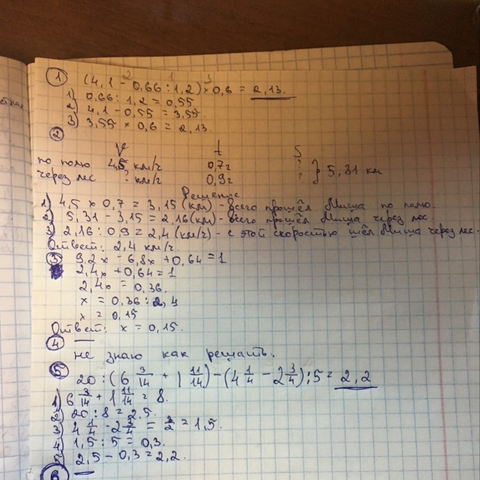 1
(4,1 - 0,66 : 1,2) × 0,6 = 2,13.
1) 0,66 : 1,2 = 0,55
2) 4,1 - 0,55 = 3,55.
3) 3,55 × 0,6 = 2,13
2
V t S
по полю 4,5 км/ч 0,7ч
через лес ? км/ч 0,9ч } 5,31 км
Решение
1) 4,5 × 0,7 = 3,15 (км) - всего прошёл Миша по полю.
2) 5,31 - 3,15 = 2,16 (км) - всего прошёл Миша через лес
3) 2,16 : 0,9 = 2,4 (км/ч) - с этой скоростью шёл Миша через лес.
Ответ: 2,4 км/ч.
3 9,2x - 6,8x + 0,64 = 1
2,4x + 0,64 = 1
2,4x = 0,36.
x = 0,36 : 2,4
x = 0,15
Ответ: x = 0,15.
4
не знаю как решать.
5
20 : (6 3/14 + 1 11/14) - (4 1/4 - 2 3/4) : 5 = 2,2
1) 6 3/14 + 1 11/14 = 8.
2) 20 : 8 = 2,5.
3) 4 1/4 - 2 3/4 = 3/2 = 1,5.
4) 1,5 : 5 = 0,3.
5) 2,5 - 0,3 = 2,2.
6